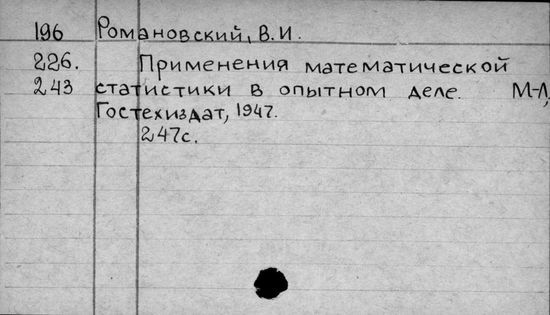 196 Романовский, В. И.
226. Применения математической
243 статистики в опытном деле. М-Л,
Гостехиздат, 1947.
247с.